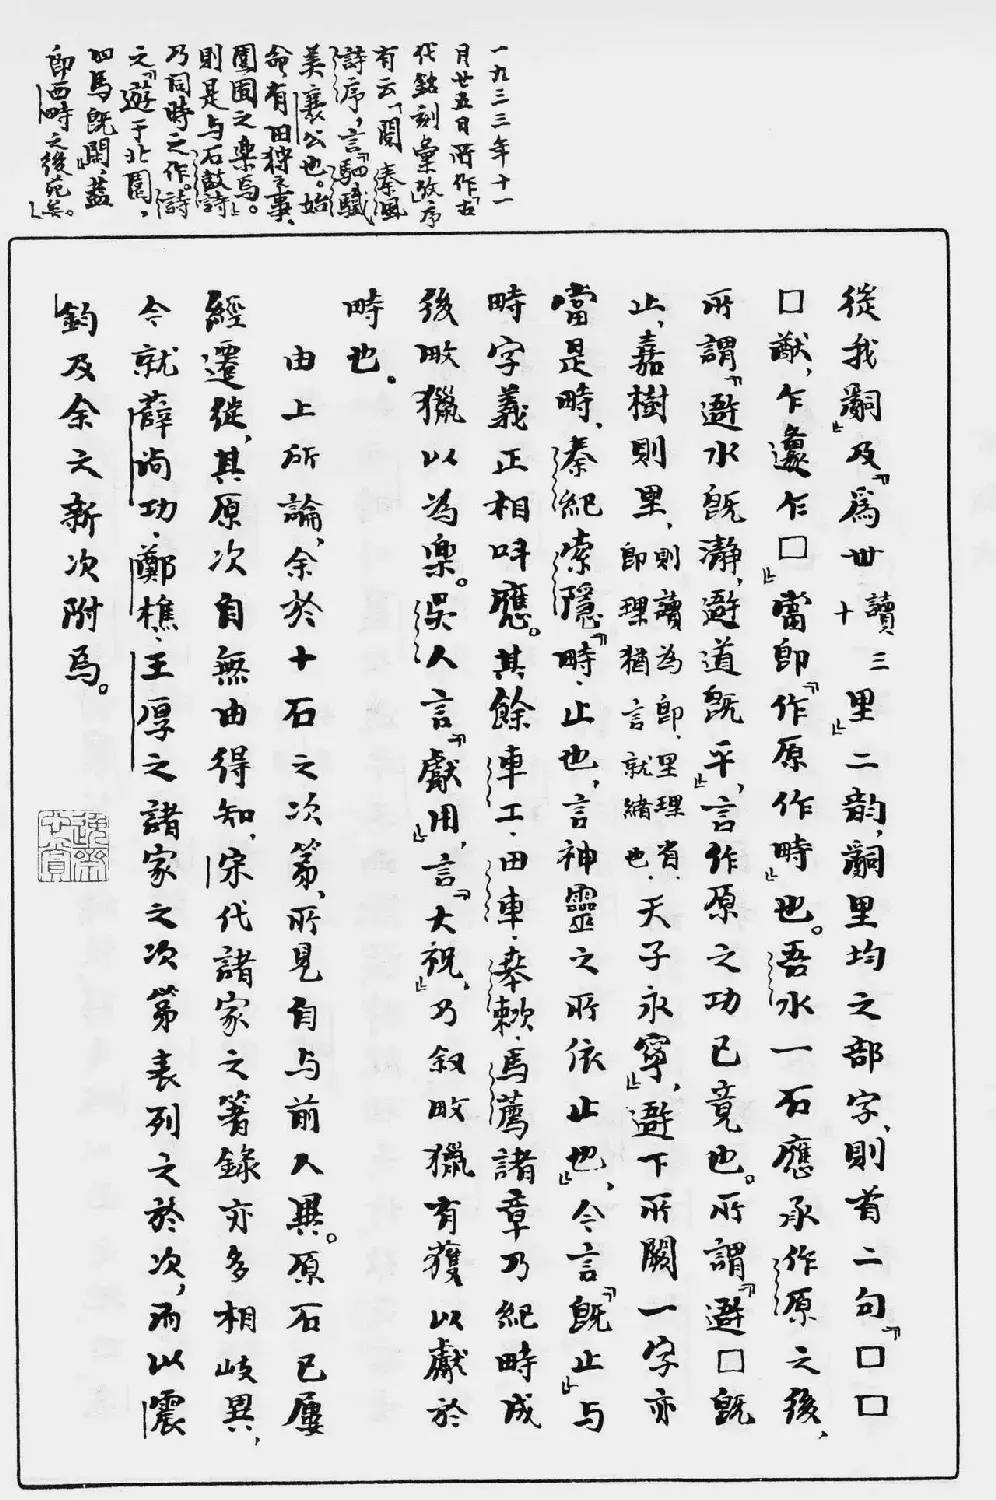 一九三三年十一
月廿五日所作「古
代銘刻彙攷」序
有云「閱秦風
詩序，言「駟驖
美襄公也。始
命，有田狩之事、
園囿之樂焉。」
則是与石鼓詩
乃同時之作。詩
之「遊于北園，
四馬既閑」，蓋
即西畤之後苑矣。」
從我嗣」及「為卅讀三十里」二韵，嗣里均之部字，則首二句「□□
□猷，乍邍乍□」當即「作原作畤」也。吾水一石應承作原之後，
所謂「避水既瀞，避道既平」，言作原之功已竟也。所謂「避□既
止，嘉樹則里，則讀為即，里理省，即理猶言就緒也。天子永寧」，避下所闕一字亦
當是畤，秦紀索隱「畤、止也，言神靈之所依止也」，今言「既止」与
畤字義正相呼應。其餘車工、田車、𠦪敕、馬薦諸章乃紀畤成
後畋獵以為樂。吳人言「獻用」，言「大祝」，乃叙畋獵有獲以獻於
畤也。
由上所論，余於十石之次第，所見自与前人異。原石已屢
經遷徙，其原次自無由得知，宋代諸家之箸錄亦多相歧異，
今就薛尚功、鄭樵、王厚之諸家之次第表列之於次，而以震
鈞及余之新次附焉。